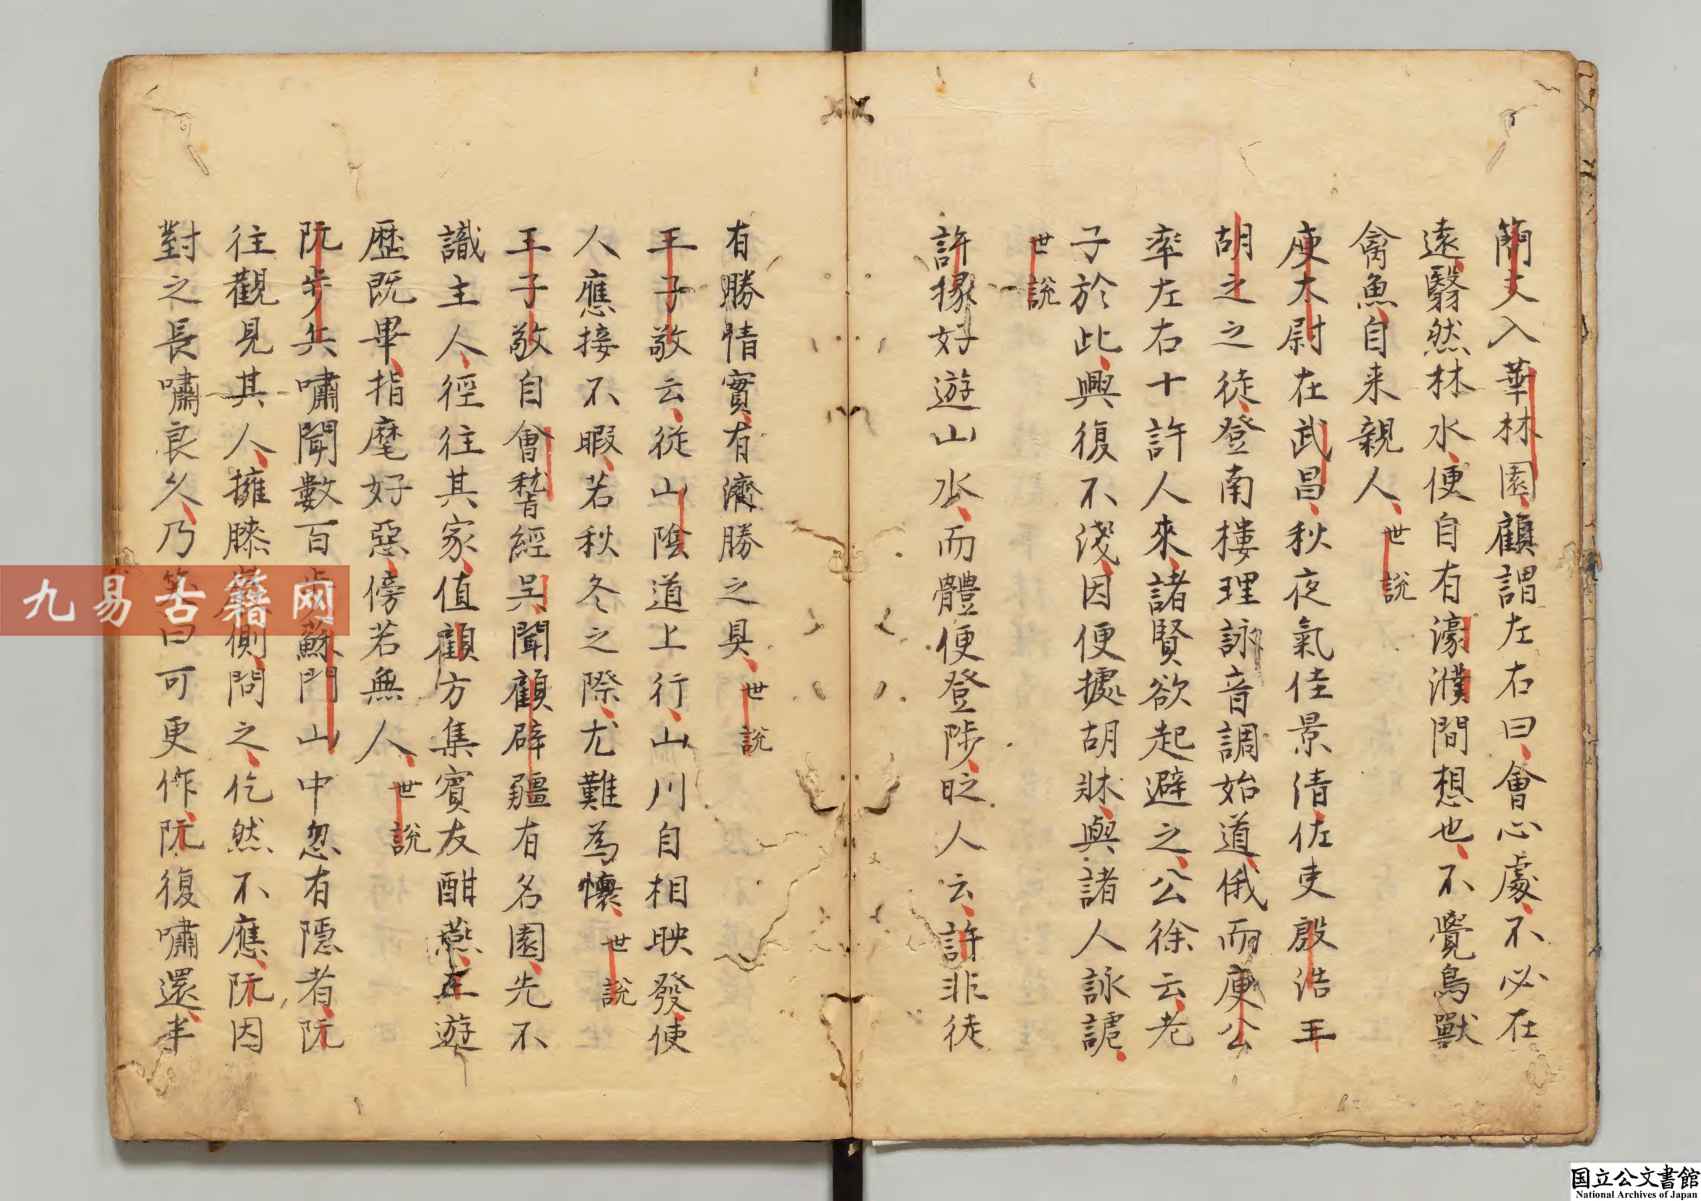 簡文入華林園顧謂左右曰會心處不必在
遠翳然林水便自有濠濮間想也不覺鳥獸
禽魚自来親人世說
庾太尉在武昌秋夜氣佳景清佐吏殷浩王
胡之之徒登南樓理詠音調始遒俄而庾公
率左右十許人來諸賢欲起避之公徐云老
子於此興復不淺因便據胡牀與諸人詠謔
世說
許掾好遊山水而體便登陟时人云許非徒
有勝情實有濟勝之具世說
王子敬云從山陰道上行山川自相映發使
人應接不暇若秋冬之際尤難為懷世說
王子敬自會稽經吳聞顧辟疆有名園先不
識主人徑往其家值顧方集賓友酣燕王遊
歷既畢指麾好惡傍若無人世說
阮步兵嘯聞數百步蘇門山中忽有隱者阮
往觀見其人擁膝側問之仡然不應阮因
對之長嘯良久乃笑曰可更作阮復嘯還半
九易古籍网
国立公文書館
National Archives of Japan